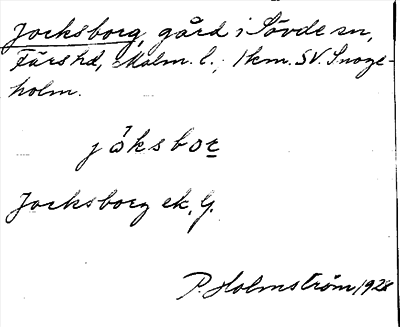 Jocksborg, gård i Sövde sn,
Färs hd, Malm. l., 1 km. SV. Snoge-
holm.
jåksbor
Jocksborg ek. G.
P. Holmström 1928